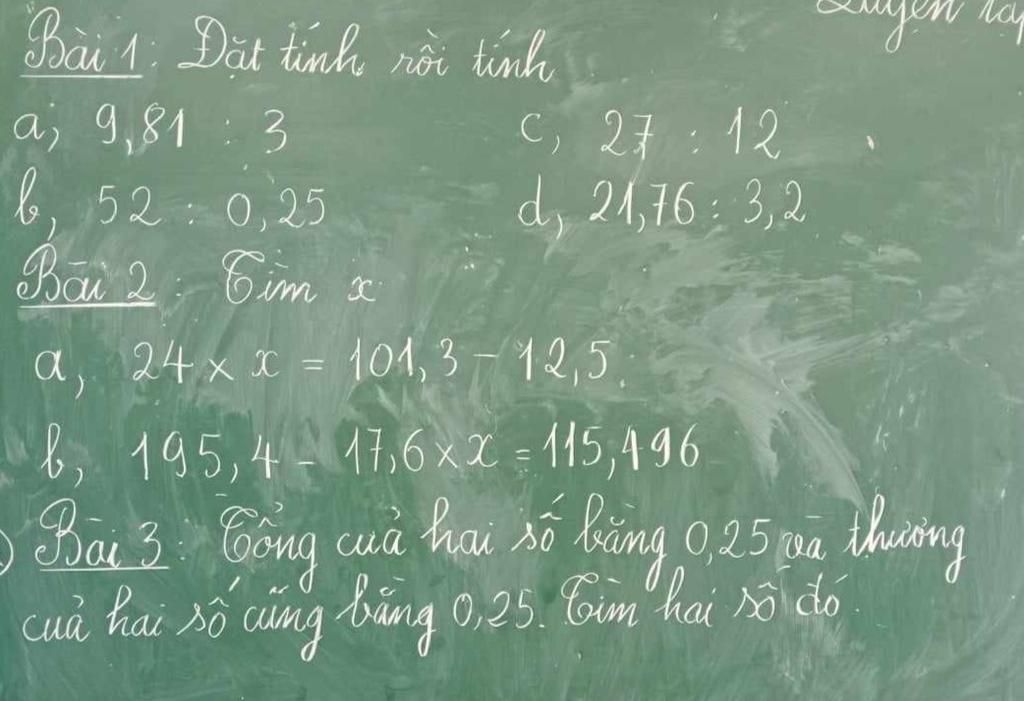 Luyện tập
Bài 1: Đặt tính rồi tính
a, 9,81 : 3
c, 27 : 12
b, 52 : 0,25
d, 21,76 : 3,2
Bài 2: Tìm x
a, 24 × x = 101,3 - 12,5
b, 195,4 - 17,6 × x = 115,496
Bài 3: Tổng của hai số bằng 0,25 và thương
của hai số cũng bằng 0,25. Tìm hai số đó.